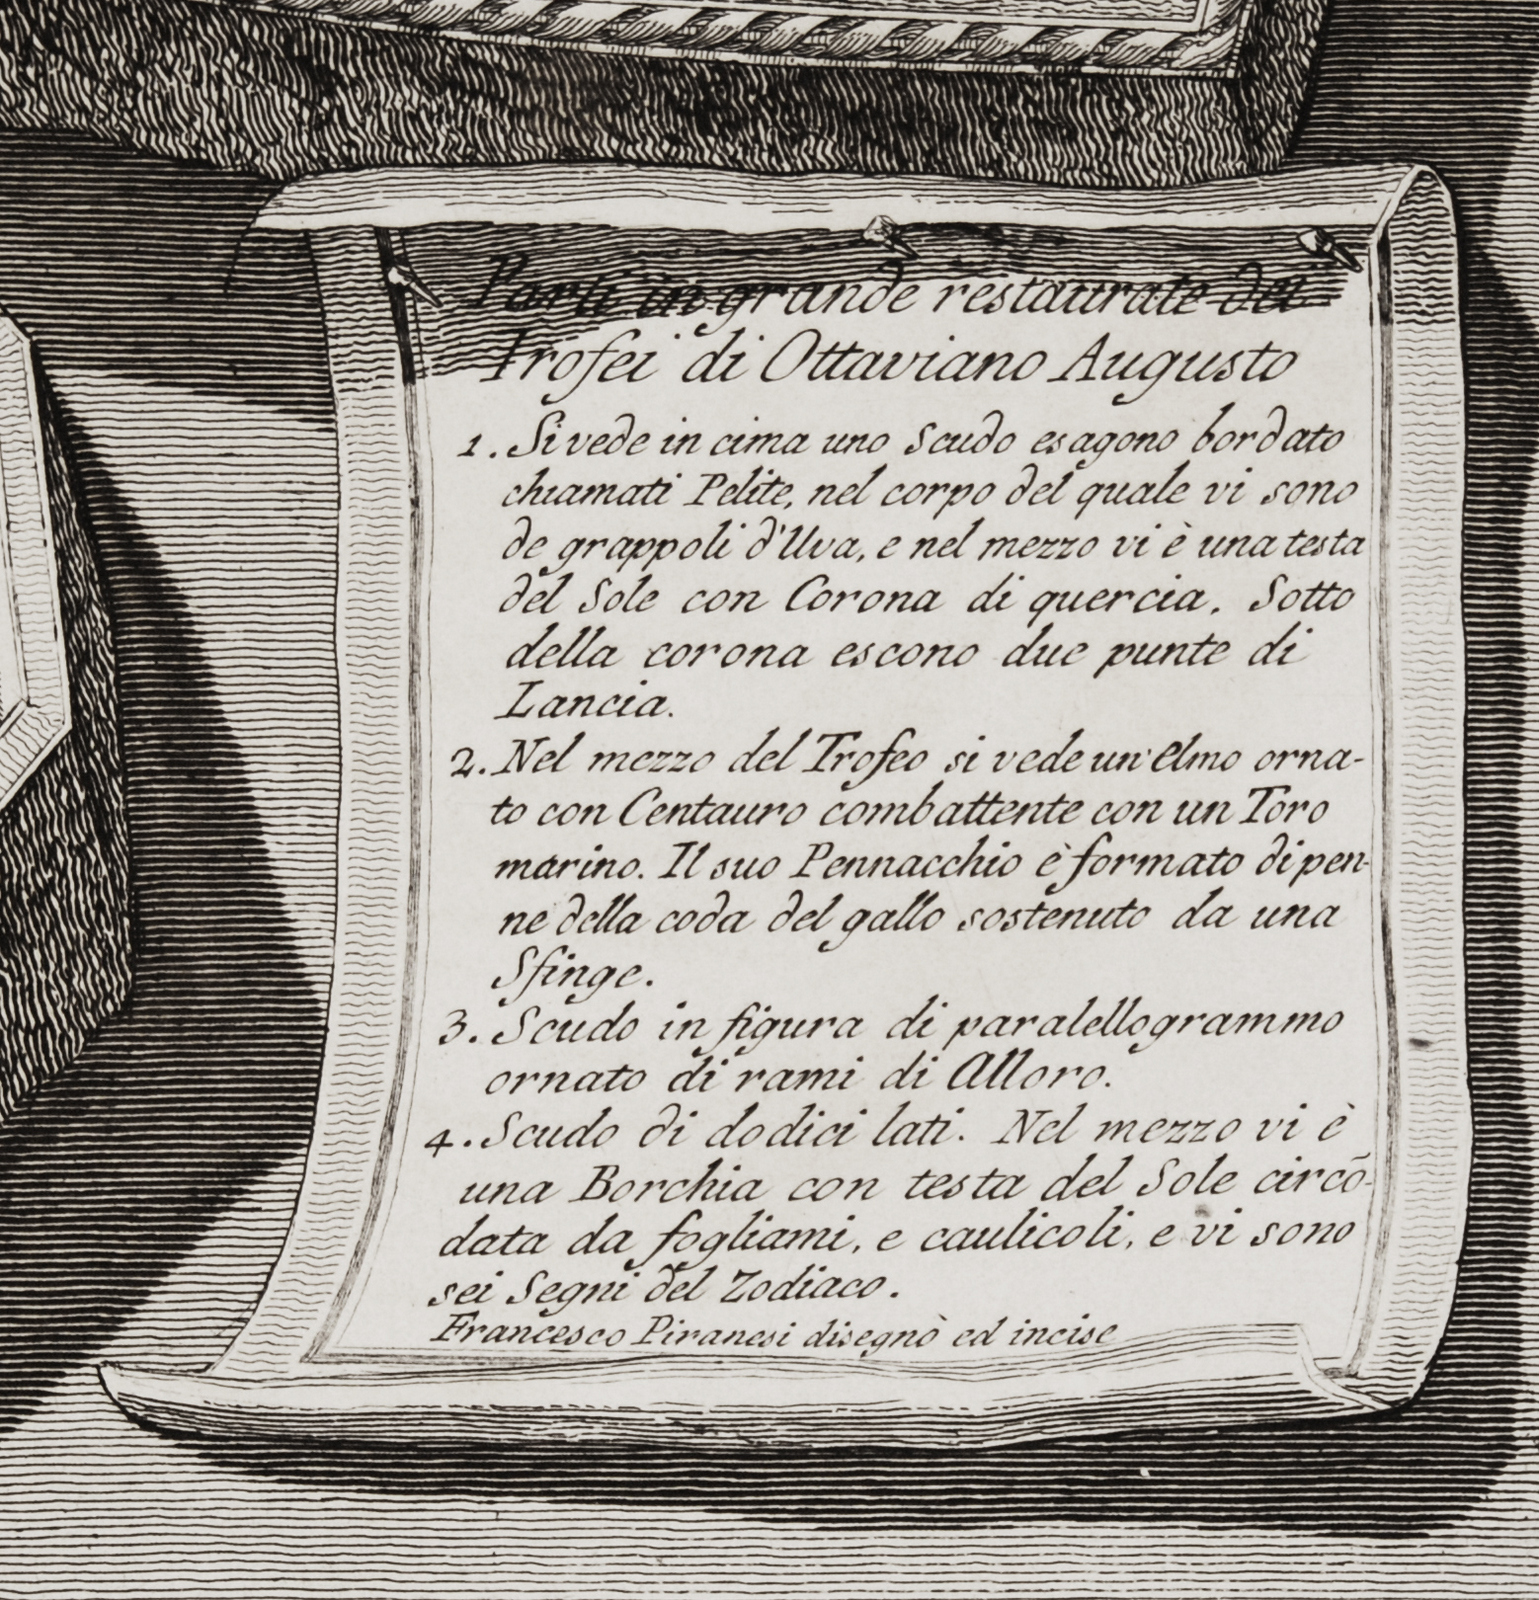 Parti in grande restaurate dei
Trofei di Ottaviano Augusto
1. Si vede in cima uno Scudo esagono bordato
chiamati Pelite, nel corpo del quale vi sono
de grappoli d'Uva, e nel mezzo vi è una testa
del Sole con Corona di quercia. Sotto
della corona escono due punte di
Lancia.
2. Nel mezzo del Trofeo si vede un' Elmo orna-
to con Centauro combattente con un Toro
marino. Il suo Pennacchio è formato di pen-
ne della coda del gallo sostenuto da una
Sfinge.
3. Scudo in figura di paralellogrammo
ornato di rami di Alloro.
4. Scudo di dodici lati. Nel mezzo vi è
una Borchia con testa del Sole circō-
data da fogliami, e caulicoli, e vi sono
sei Segni del Zodiaco.
Francesco Piranesi disegnò ed incise